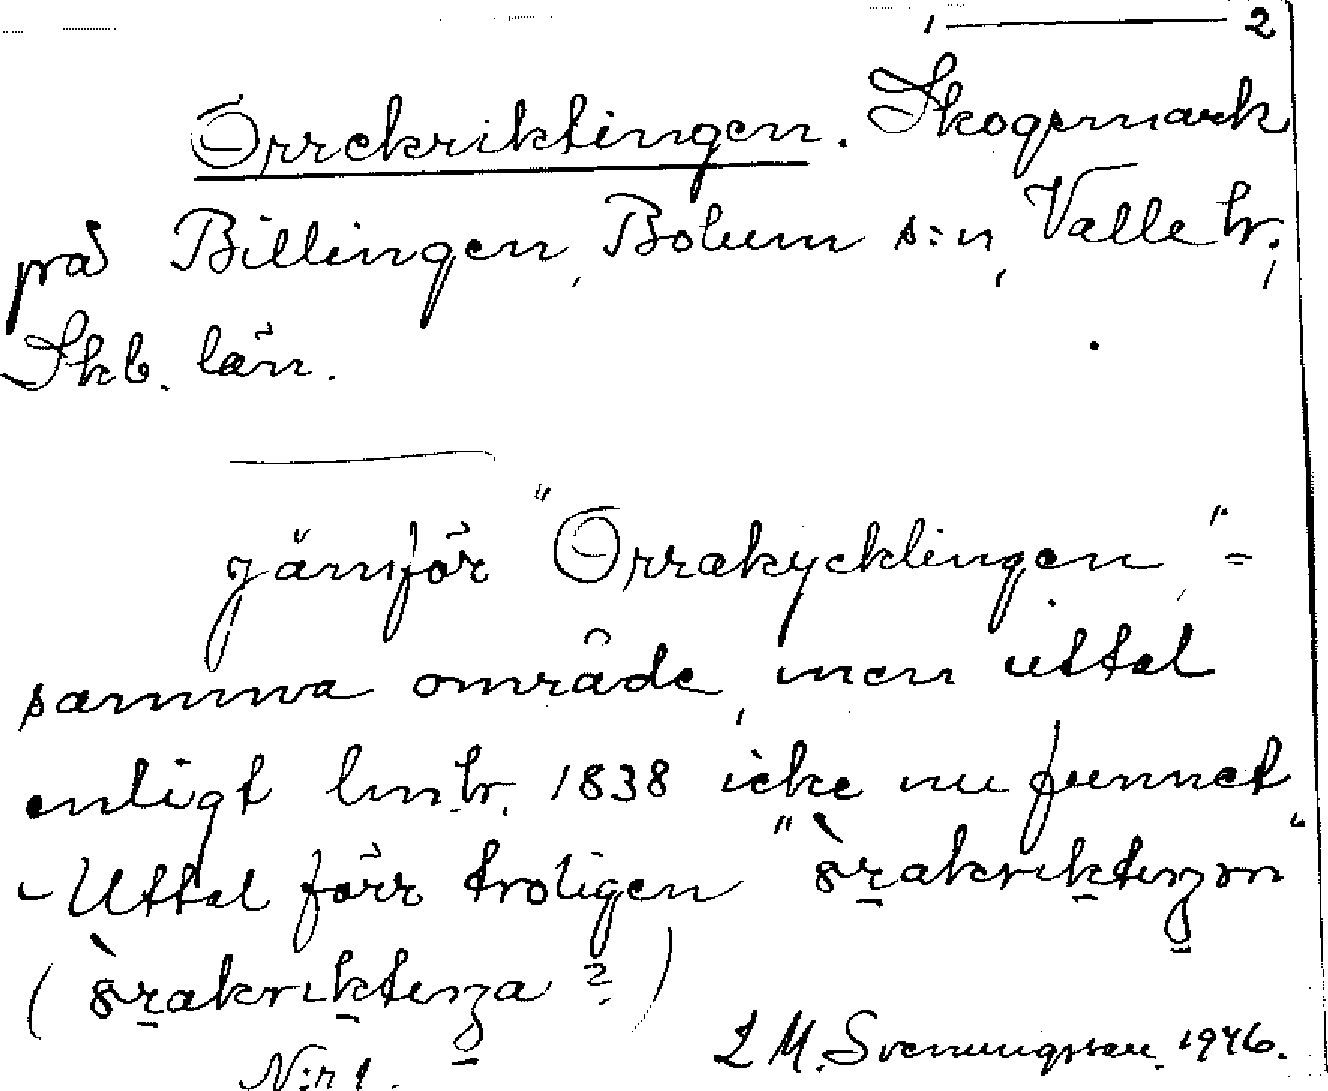 1 — 2
Orrekriktingen. Skogsmark
på Billingen, Bolum s:n, Valle hr,
Skb. län.
jämför "Orrakycklingen" =
samma område, men uttal
enligt lm.hr. 1838 icke nu funnet
- Uttal förr troligen
( ? )
N:r 1. L M. Svenungsson. 1946.